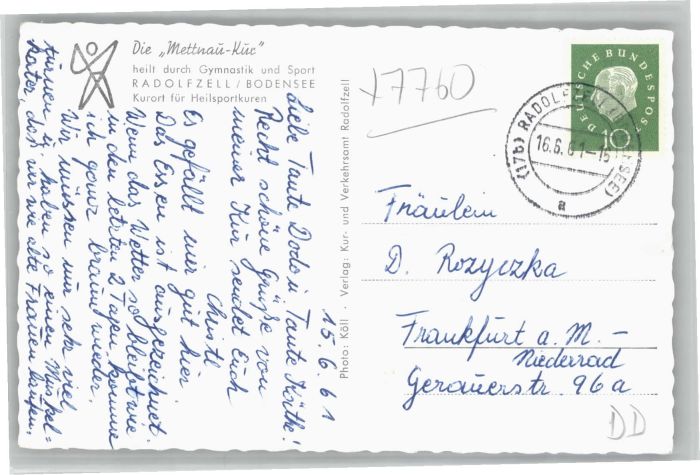 Die „Mettnau-Kur"
heilt durch Gymnastik und Sport
RADOLFZELL / BODENSEE
Kurort für Heilsportkuren
15.6.61
Liebe Tante Dodo u. Tante Käthe!
Recht schöne Grüße von
meiner Kur sendet Euch
Christl
Es gefällt mir gut hier
Das Essen ist ausgezeichnet.
Wenn das Wetter so bleibt wie
in den letzten 2 Tagen, komme
ich ganz braun wieder.
Wir müssen nur sehr viel
turnen u. haben so einen Muskel-
kater, daß wir wie alte Frauen laufen.
Photo: Köll · Verlag: Kur- und Verkehrsamt Radolfzell
17760
DEUTSCHE BUNDESPOST
10
(17b) RADOLFZELL (BODENSEE)
16.6.61-15
a
Fräulein
D. Rozyczka
Frankfurt a. M.-
Niederrad
Gerauerstr. 96a
DD